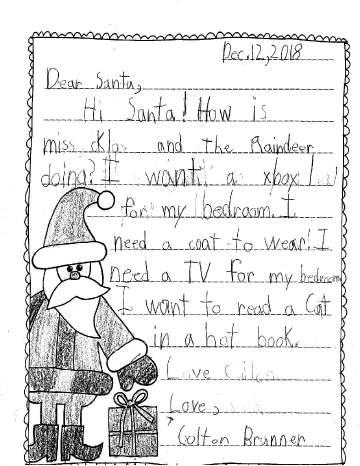 Dec.12,2018
Dear Santa,
Hi Santa! How is
miss clas and the Raindeer
doing? I want a xbox 1
for my bedroom. I
need a coat to wear! I
need a TV for my bedroom
I want to read a Cat
in a hot book.
Love
Love,
Colton Brunner